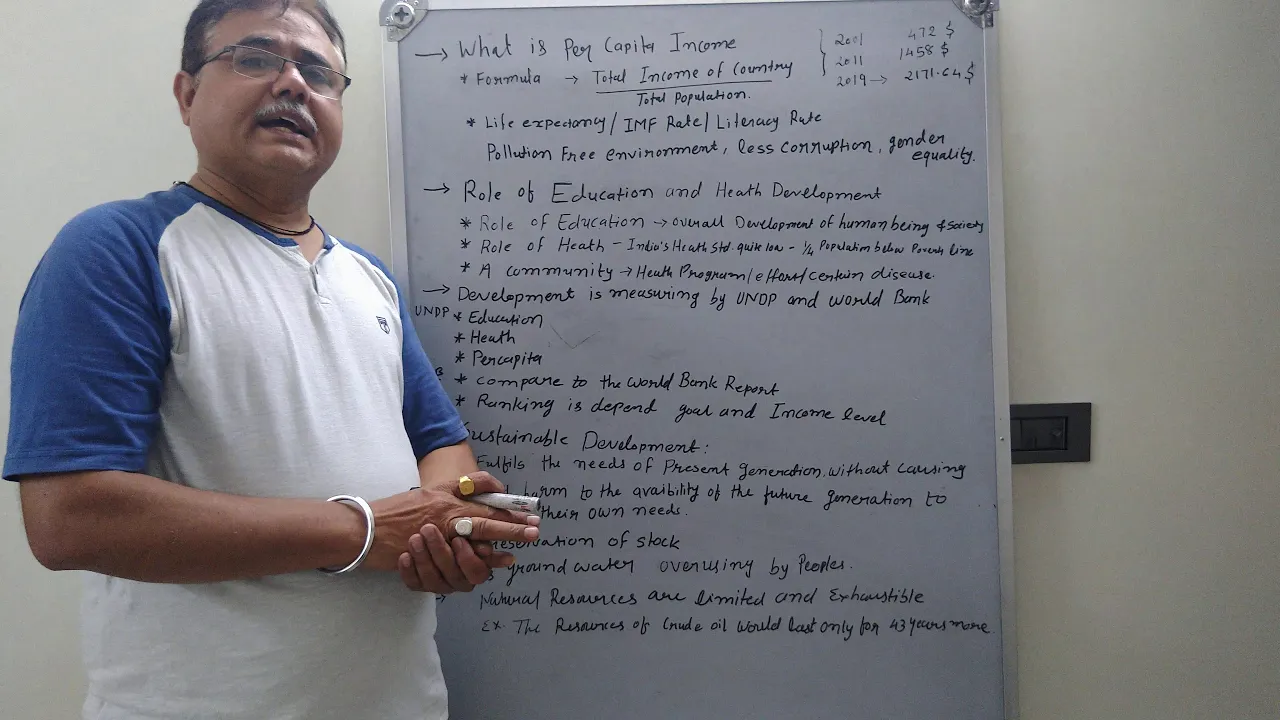 → What is Per Capita Income
* Formula → Total Income of Country
Total Population.
2001 472 $
2011 1458 $
2019 → 2171.64 $
* Life expectancy / IMF Rate / Literacy Rate
Pollution Free environment, less corruption, gender
equality.
→ Role of Education and Heath Development
* Role of Education → overall Development of human being & Society
* Role of Heath - India's Heath Std. quite low - 1/4 Population below Poverty line
* A community → Heath Program / effort / certain disease.
→ Development is measuring by UNDP and World Bank
UNDP * Education
* Heath
* Percapita
* compare to the World Bank Report
* Ranking is depend goal and Income level
Sustainable Development:
Fulfils the needs of Present generation, without causing
harm to the avaibility of the future generation to
their own needs.
of stock
groundwater overusing by Peoples.
→ Natural Resources are limited and Exhaustible
Ex. The Resources of Crude oil would last only for 43 years more